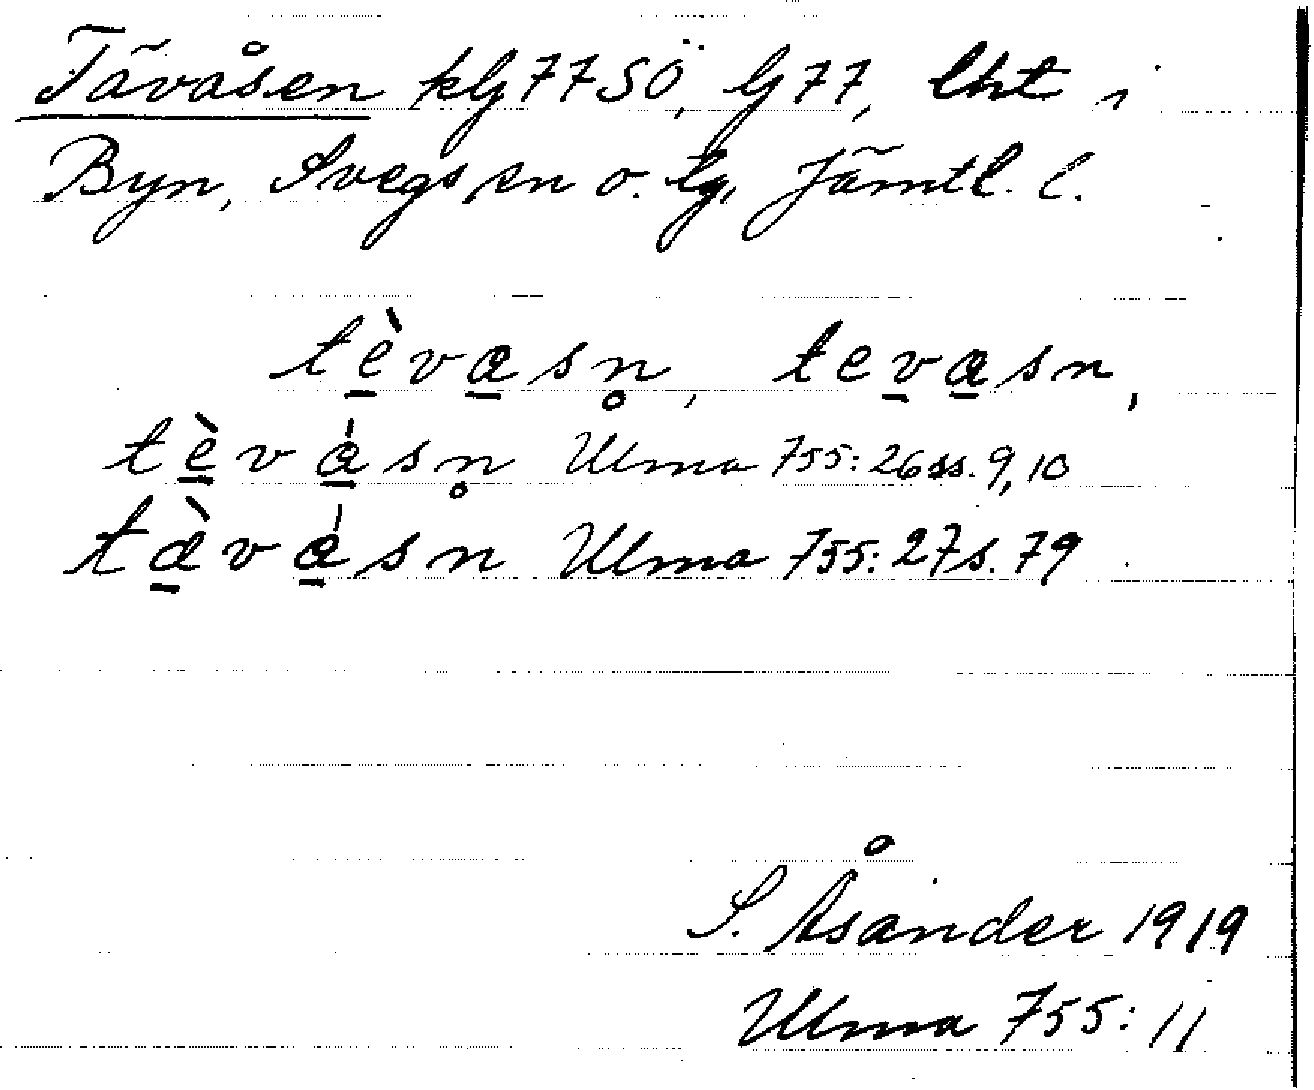 Tävåsen klg 77 SÖ, lg 77, lht i
Byn, Svegs sn o. tg, Jämtl. l.
tè̱va̱sn̥, tev̱a̱sn,
tè̱vá̱sn̥ Ulma 755: 26 ss. 9, 10
tà̱vá̱sn Ulma 755: 27 s. 79
S. Åsander 1919
Ulma 755: 11